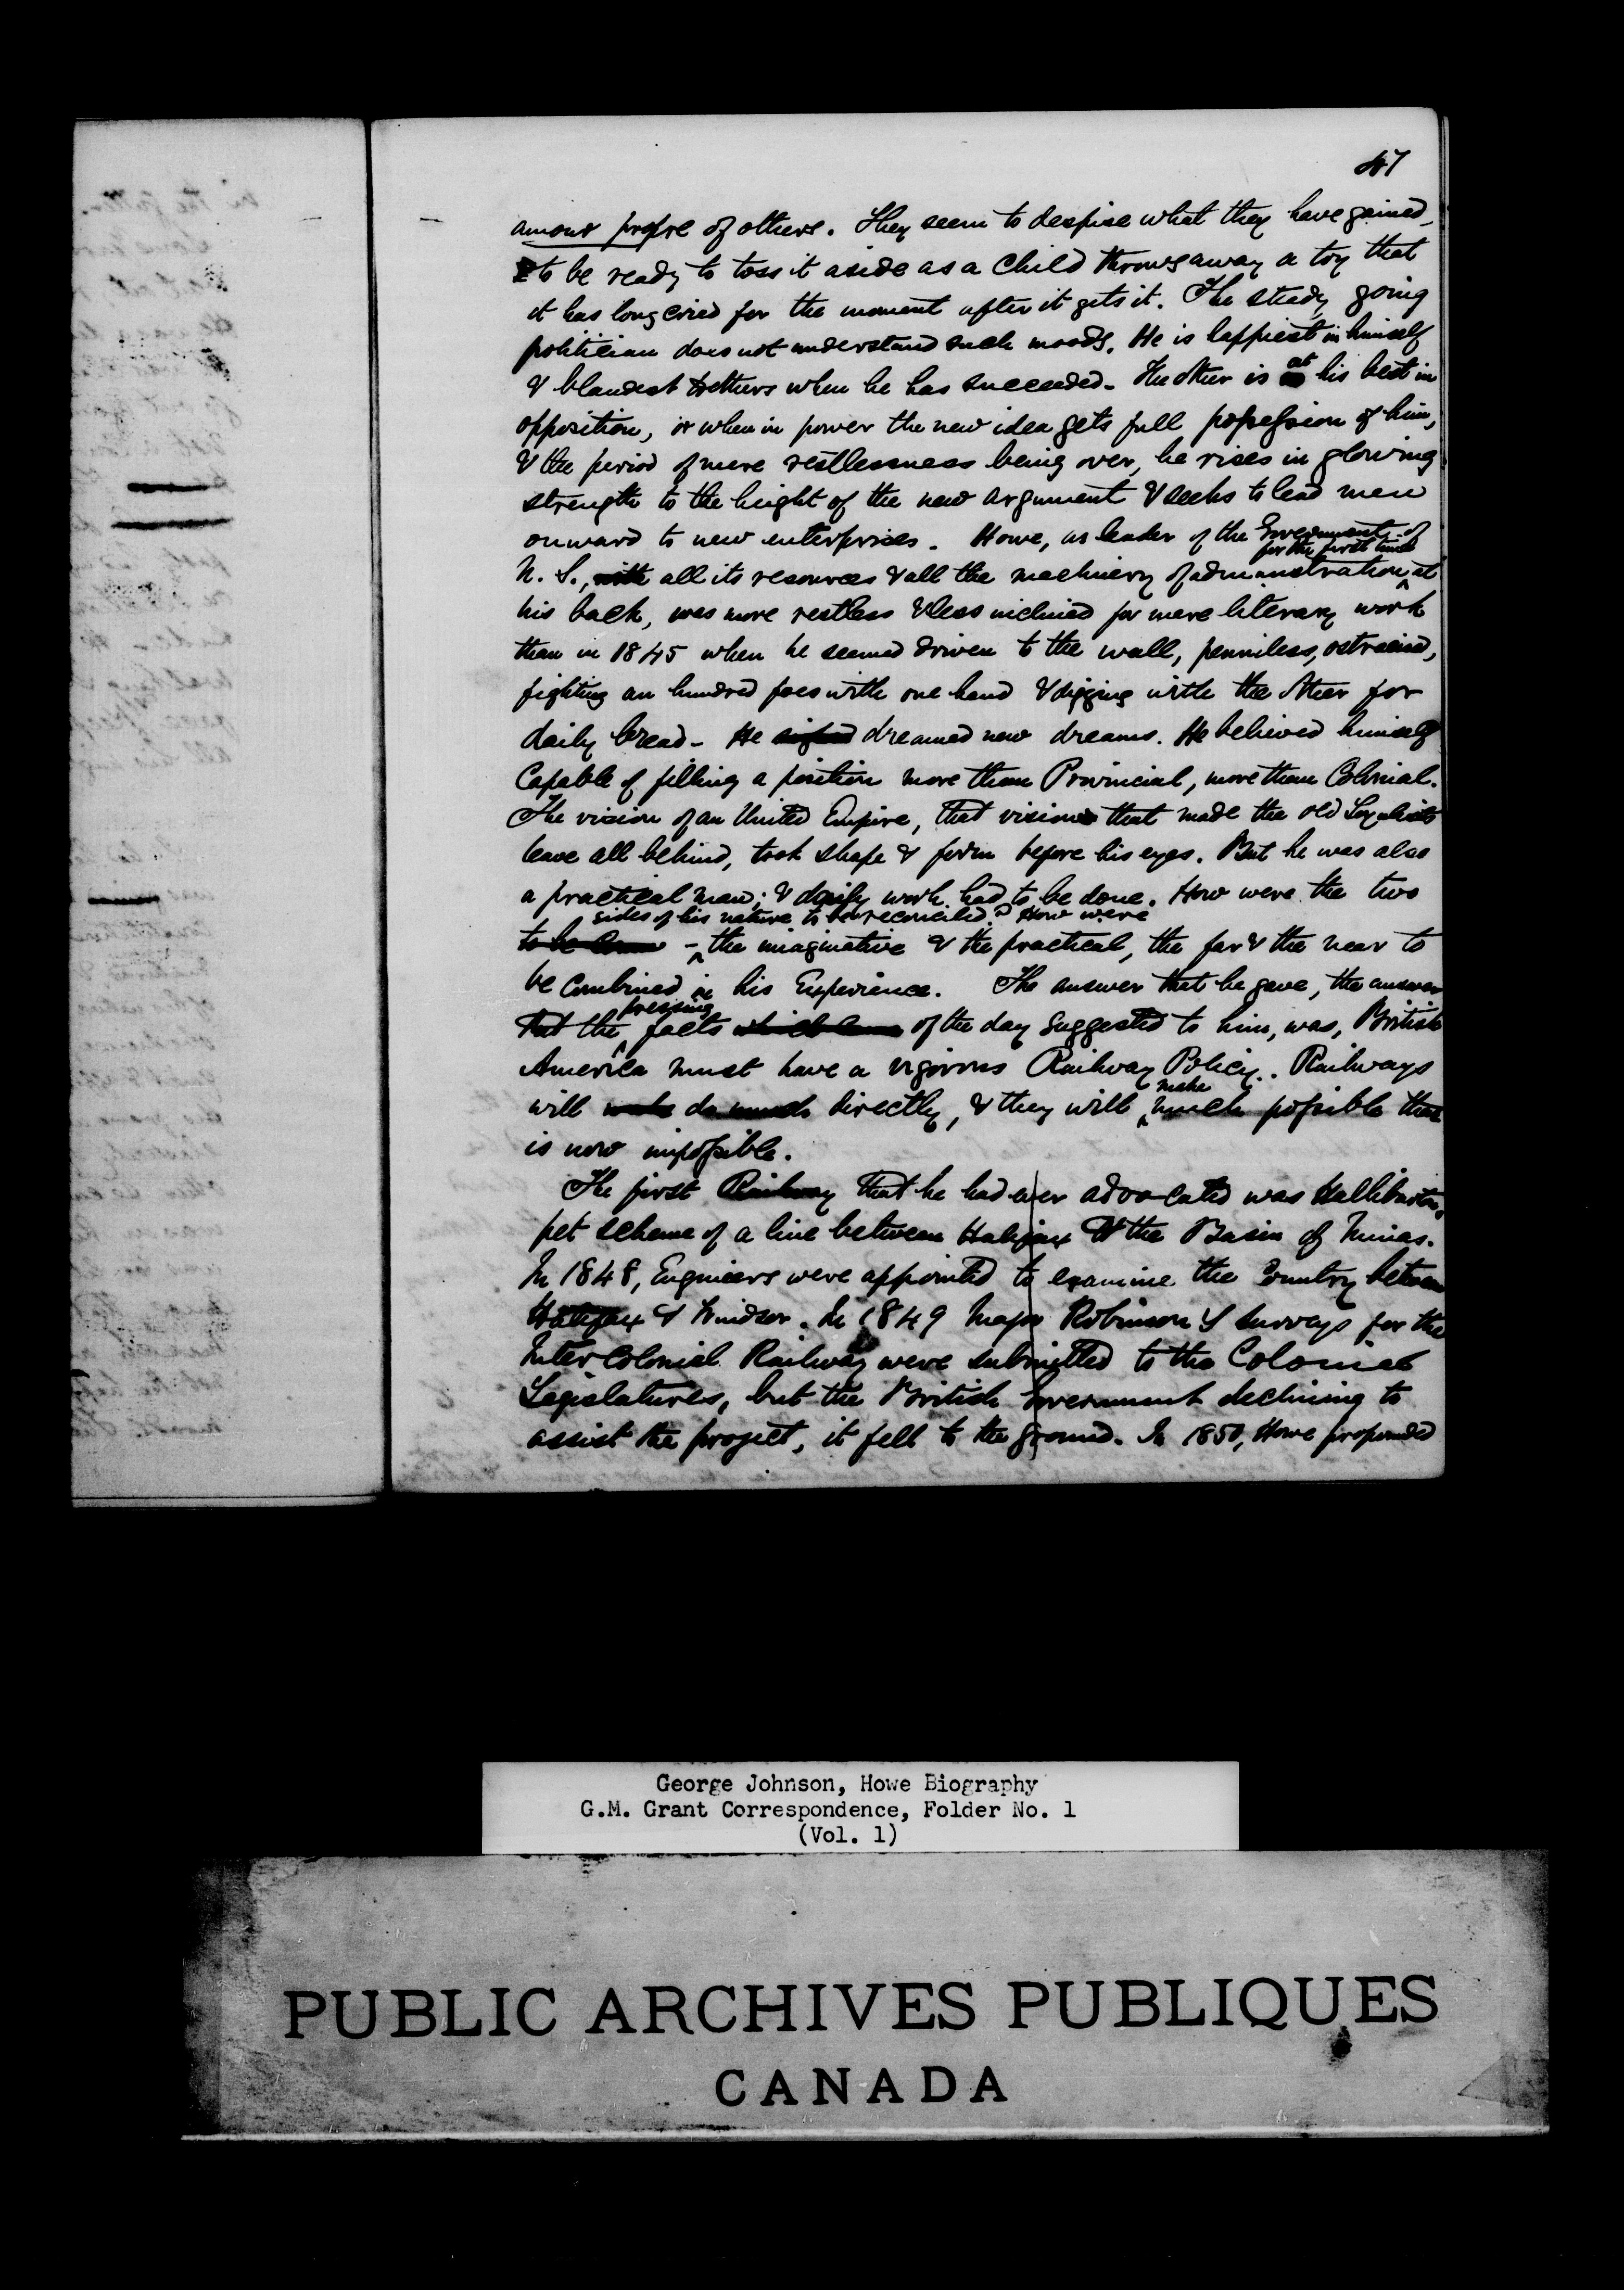 47
amour propre of others. They seem to despise what they have gained,
& to be ready to toss it aside as a child throws away a toy that
it has long cried for the moment after it gets it. The steady going
politician does not understand such moods. He is happiest in himself
& blandest to others when he has succeeded. The other is at his best in
opposition, or when in power the new idea gets full possession of him,
& the period of mere restlessness being over, he rises in glowing
strength to the height of the new argument & seeks to lead men
onward to new enterprises. Howe, as leader of the Government of
for the first time
N. S., with all its resources & all the machinery of administration at
his back, was more restless & less inclined for mere literary work
than in 1845 when he seemed driven to the wall, penniless, ostracised,
fighting an hundred foes with one hand & digging with the other for
daily bread - He dreamed new dreams. He believed himself
Capable of filling a position more than Provincial, more than Colonial.
The vision of an United Empire, that vision that made the old Loyalists
leave all behind, took shape & form before his eyes. But he was also
a practical man; & daily work had to be done. How were the two
sides of his nature to be reconciled? How were
to be - the imaginative & the practical, the far & the near to
be combined in his Experience. The answer that he gave, the answer
pressing
that the facts of the day suggested to him, was, British
America must have a vigorous Railway Policy. Railways
make
will do much directly, & they will much possible that
is now impossible.
The first Railway that he had ever advocated was Halliburton's
pet scheme of a line between Halifax & the Basin of Minas.
In 1848, Engineers were appointed to examine the Country between
Halifax & Windsor. In 1849 Major Robinson's surveys for the
Inter Colonial Railway were submitted to the Colonial
Legislatures, but the British Government declining to
assist the project, it fell to the ground. In 1850, Howe propounded
George Johnson, Howe Biography
G.M. Grant Correspondence, Folder No. 1
(Vol. 1)
PUBLIC ARCHIVES PUBLIQUES
CANADA